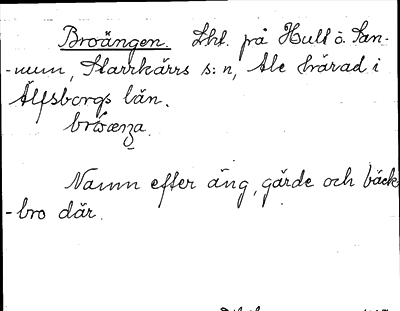 Broängen. Lht. på Hult ö. San-
-num, Starrkärrs s:n, Ale härad i
Älfsborgs län.
Namn efter äng, gärde och bäck
-bro där.